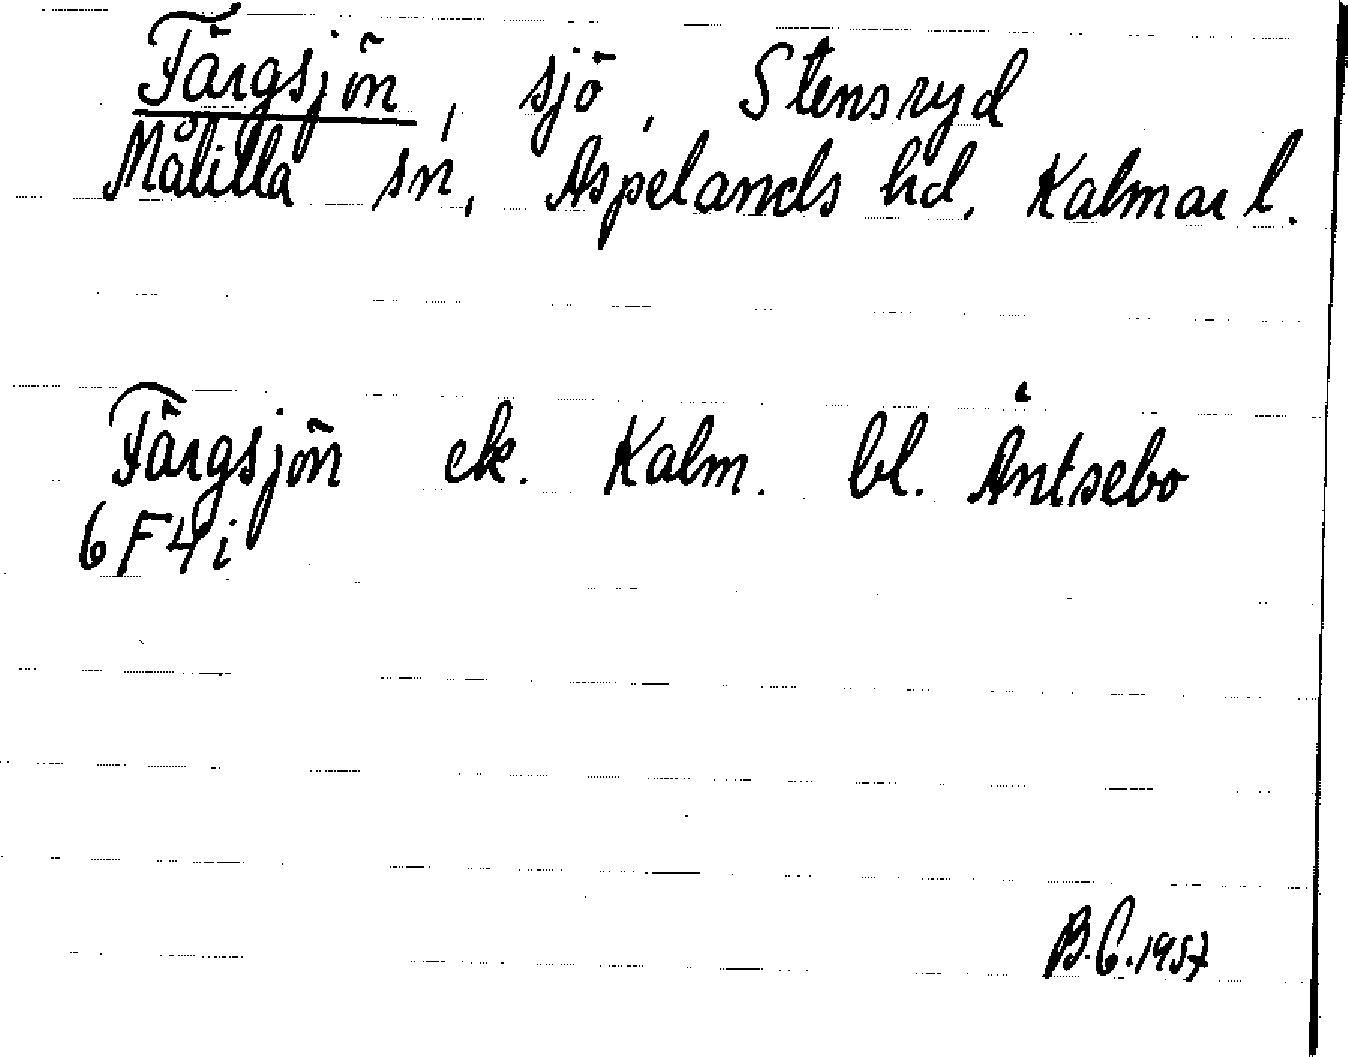 Färgsjön, sjö, Stensryd
Målilla sn, Aspelands hd, Kalmar l.
Färgsjön ek. Kalm. bl. Åntsebo
6F4i
B.C.1957